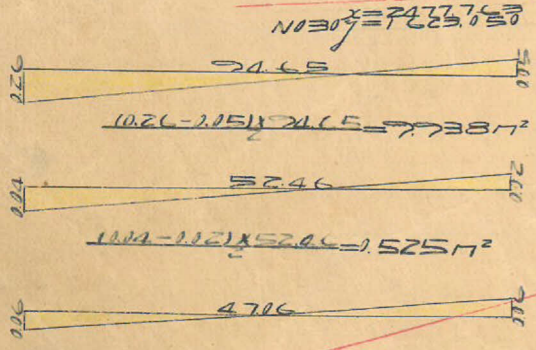 x=7477.763
N030 y=1623.050
0.26 94.65 0.05
(0.26-0.05)×94.65/2=9.938m²
0.04 52.46 0.02
(0.04-0.02)×52.46/2=0.525m²
0.06 47.06